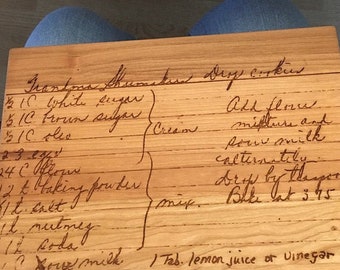 Grandma Shumakers Drop Cookies
½ C white sugar
½ C brown sugar
½ C oleo
2 eggs
Cream
4 C flour
2 t. baking powder
1 t. salt
1 t. nutmeg
1 t. soda
mix.
sour milk
Add flour
mixture and
sour milk
alternately
drop by
Bake at 375
1 Tab. lemon juice or vinegar